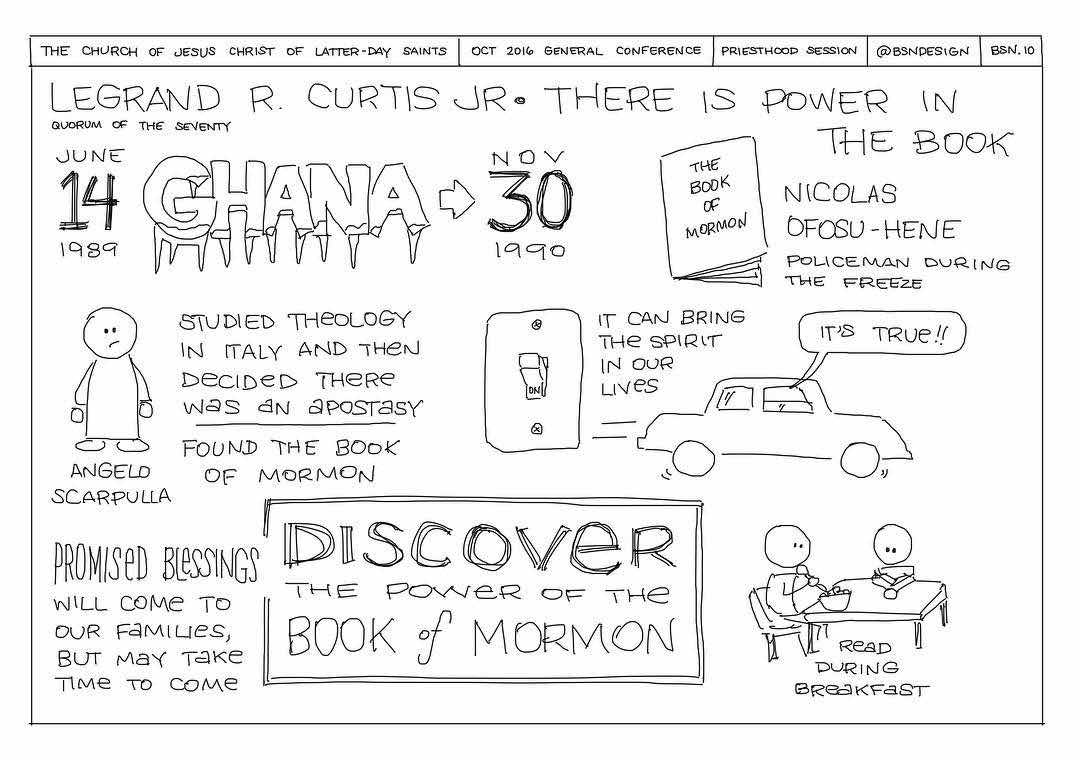 THE CHURCH OF JESUS CHRIST OF LATTER-DAY SAINTS
OCT 2016 GENERAL CONFERENCE
PRIESTHOOD SESSION
@BSNDESIGN
BSN.10
LEGRAND R. CURTIS JR • THERE IS POWER IN
THE BOOK
QUORUM OF THE SEVENTY
JUNE
14
1989
GHANA
NOV
30
1990
THE
BOOK
OF
MORMON
NICOLAS
OFOSU-HENE
POLICEMAN DURING
THE FREEZE
ANGELO
SCARPULLA
STUDIED THEOLOGY
IN ITALY AND THEN
DECIDED THERE
WAS AN APOSTASY
FOUND THE BOOK
OF MORMON
ON
IT CAN BRING
THE SPIRIT
IN OUR
LIVES
IT'S TRUE!!
PROMISED BLESSINGS
WILL COME TO
OUR FAMILIES,
BUT MAY TAKE
TIME TO COME
DISCOVER
THE POWER OF THE
BOOK of MORMON
READ
DURING
BREAKFAST